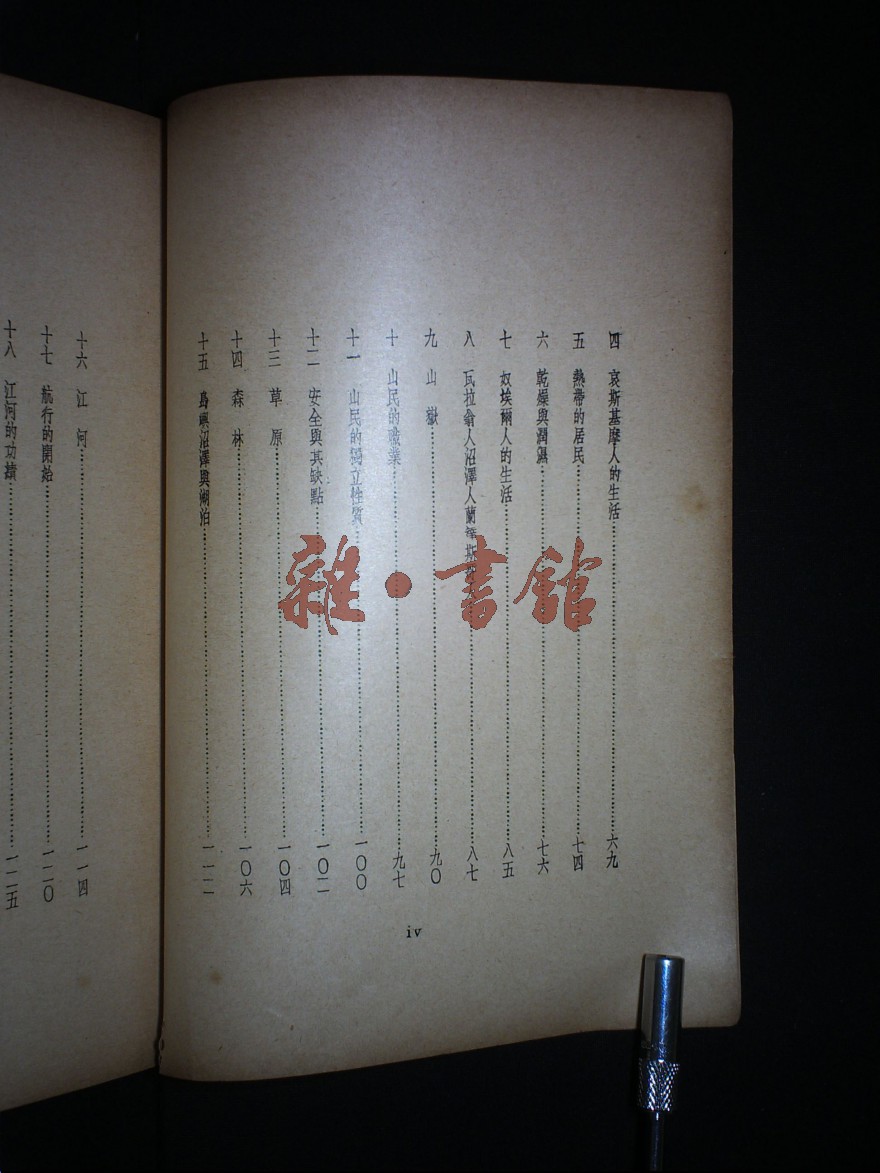 四 哀斯基摩人的生活……六九
五 熱帶的居民……七四
六 乾燥與潤濕……七六
七 奴埃爾人的生活……八五
八 瓦拉翁人沼澤人蘭 斯……八七
九 山嶽……九〇
十 山民的職業……九七
十一 山民的獨立性質……一〇〇
十二 安全與其缺點……一〇二
十三 草原……一〇四
十四 森林……一〇六
十五 島嶼沼澤與湖泊……一一二
iv
十六 江河……一一四
十七 航行的開始……一二〇
十八 江河的功績……一二五
雜·書館